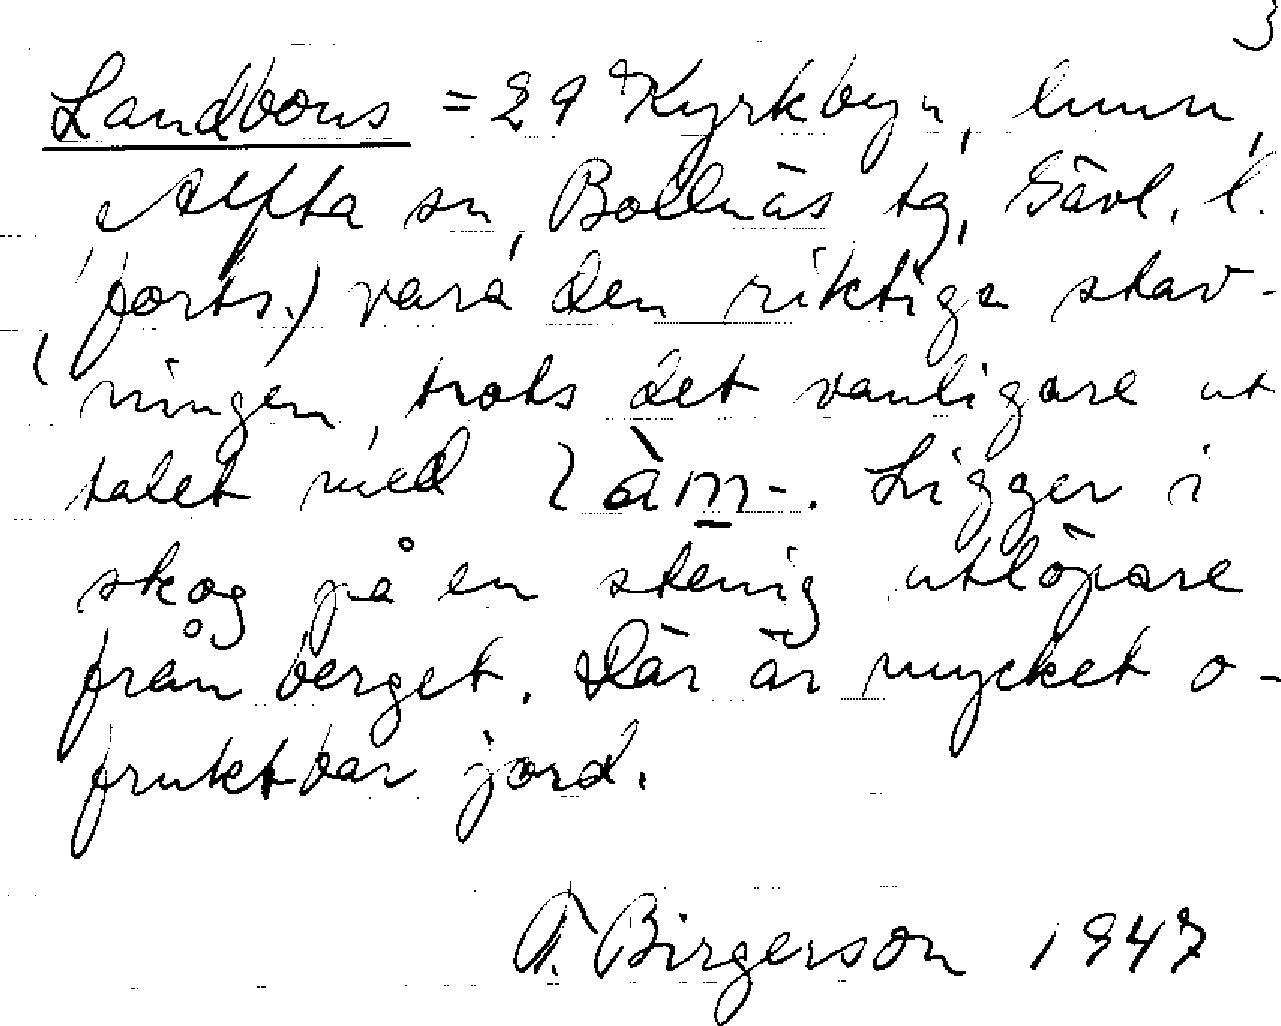 3
Landbons = 29 Kyrkbyn, hmn,
Alfta sn, Bollnäs tg, Gävl. l.
(forts.) vara den riktiga stav-
ningen, trots det vanligare ut
talet med làm-. Ligger i
skog på en stenig utlöpare
från berget. Där är mycket o-
fruktbar jord.
Birgerson 1947